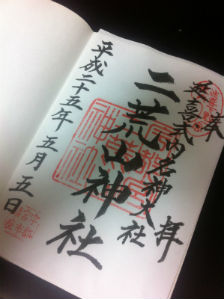 奉拝
延喜式内名神大社
二荒山神社
平成二十五年五月五日